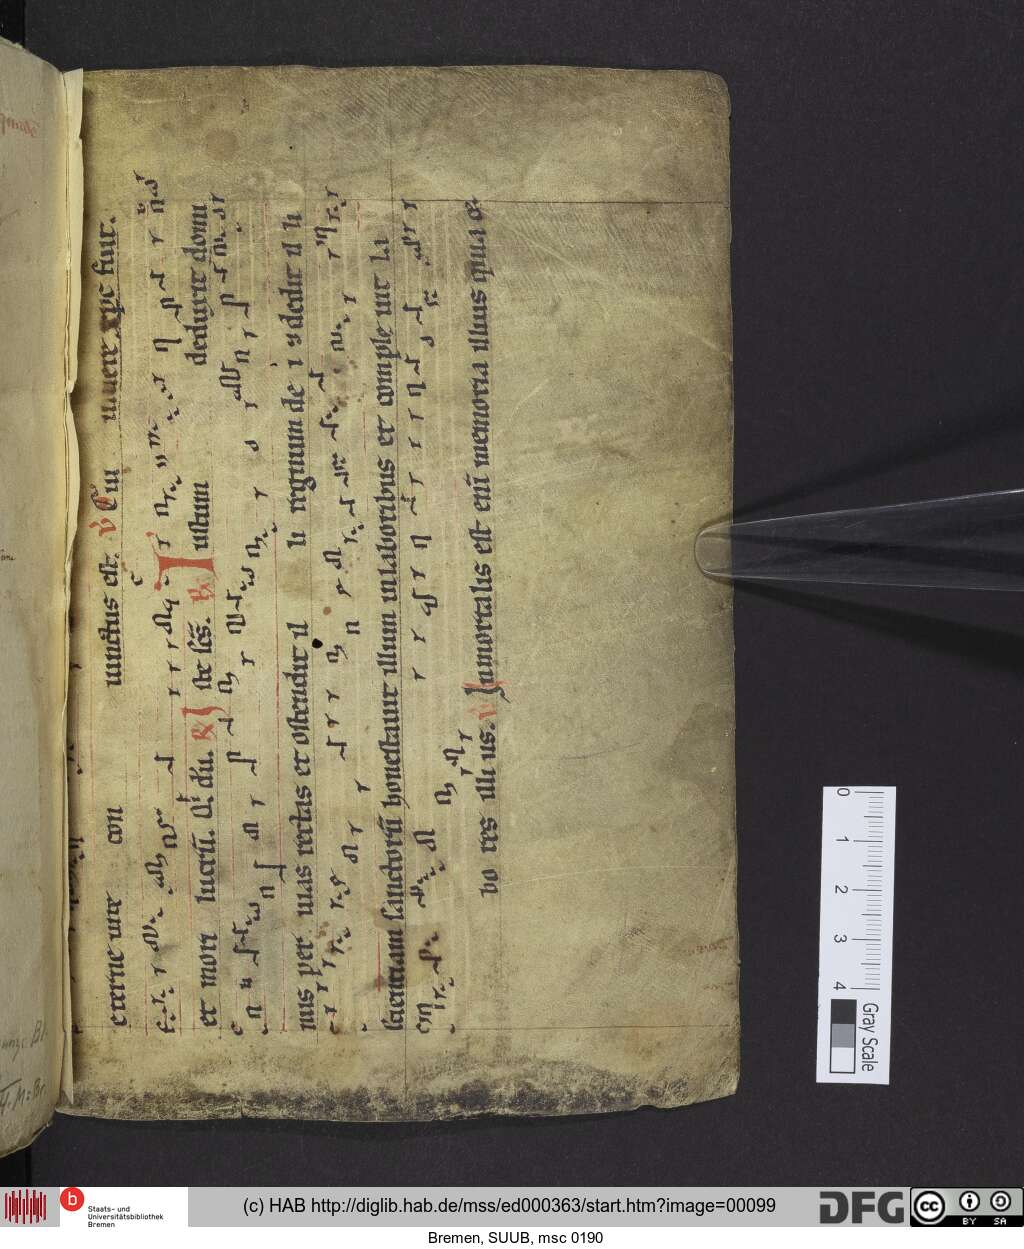 eterne vite con uinctus est. V. Cui uiuere xpc fuit.
et mori lucrū. Qi. dīu. R. Iste scs. R. Iustum deduxit domi
nus per uias rectas et ostendit il li regnum de i ⁊ dedit il li
scientiam sanctorū honestauit illum in laboribus et comple uit la
bo res illi us. V. Inmortalis est eni memoria illius
0 1 2 3 4
Gray Scale
b
Staats- und
Universitätsbibliothek
Bremen
(c) HAB http://diglib.hab.de/mss/ed000363/start.htm?image=00099
DFG
cc BY SA
Bremen, SUUB, msc 0190